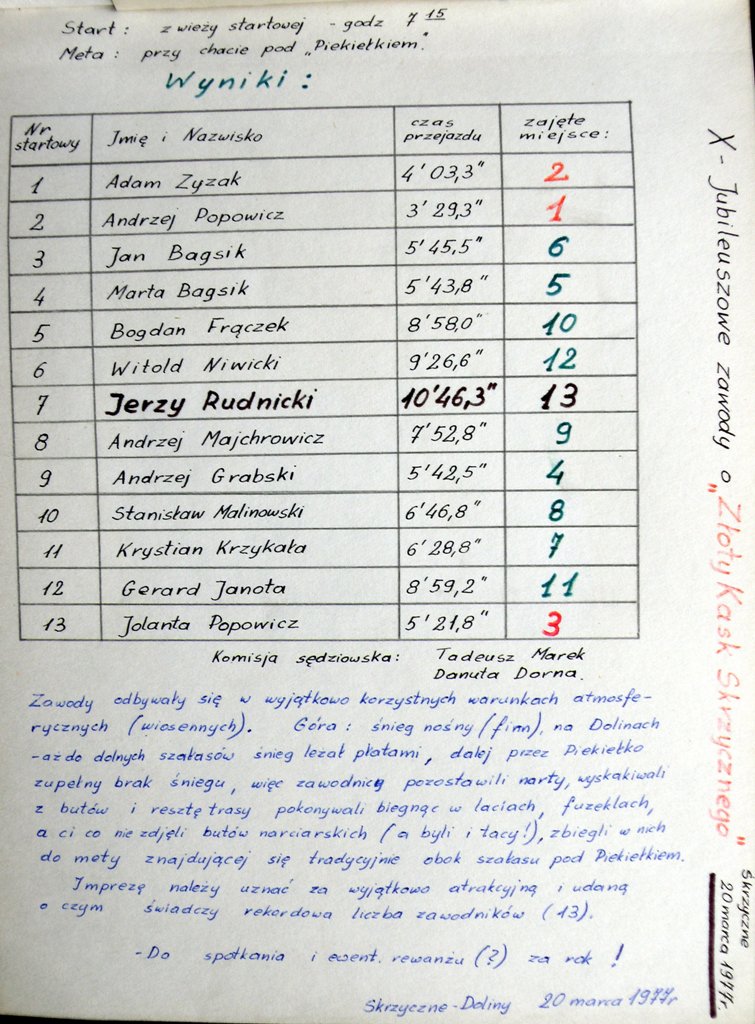 Start : z wieży startowej - godz 7 15
Meta : przy chacie pod „Piekiełkiem."
Wyniki :
Nr startowy Imię i Nazwisko czas przejazdu zajęte miejsce :
1 Adam Zyzak 4'03,3" 2
2 Andrzej Popowicz 3'29,3" 1
3 Jan Bagsik 5'45,5" 6
4 Marta Bagsik 5'43,8" 5
5 Bogdan Frączek 8'58,0" 10
6 Witold Niwicki 9'26,6" 12
7 Jerzy Rudnicki 10'46,3" 13
8 Andrzej Majchrowicz 7'52,8" 9
9 Andrzej Grabski 5'42,5" 4
10 Stanisław Malinowski 6'46,8" 8
11 Krystian Krzykała 6'28,8" 7
12 Gerard Janota 8'59,2" 11
13 Jolanta Popowicz 5'21,8" 3
Komisja sędziowska : Tadeusz Marek
Danuta Dorna.
Zawody odbywały się w wyjątkowo korzystnych warunkach atmosfe-
rycznych (wiosennych). Góra : śnieg nośny (firn), na Dolinach
- aż do dolnych szałasów śnieg leżał płatami, dalej przez Piekiełko
zupełny brak śniegu, więc zawodnicy pozostawili narty, wyskakiwali
z butów i resztę trasy pokonywali biegnąc w laciach, fuzeklach,
a ci co nie zdjęli butów narciarskich (a byli i tacy!), zbiegli w nich
do mety znajdującej się tradycyjnie obok szałasu pod Piekiełkiem.
Imprezę należy uznać za wyjątkowo atrakcyjną i udaną
o czym świadczy rekordowa liczba zawodników (13).
- Do spotkania i ewent. rewanżu (?) za rok !
Skrzyczne - Doliny 20 marca 1977r
X - Jubileuszowe zawody o „Złoty Kask Skrzycznego"
Skrzyczne
20 marca 1977r.